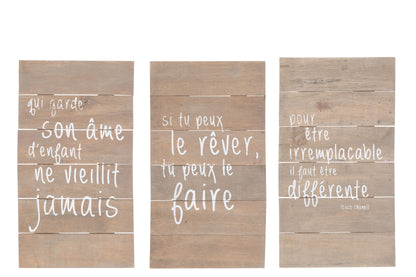 qui garde
son âme
d'enfant
ne vieillit
jamais
si tu peux
le rêver,
tu peux le
faire
pour
être
irremplaçable
il faut être
différente
(COCO CHANEL)